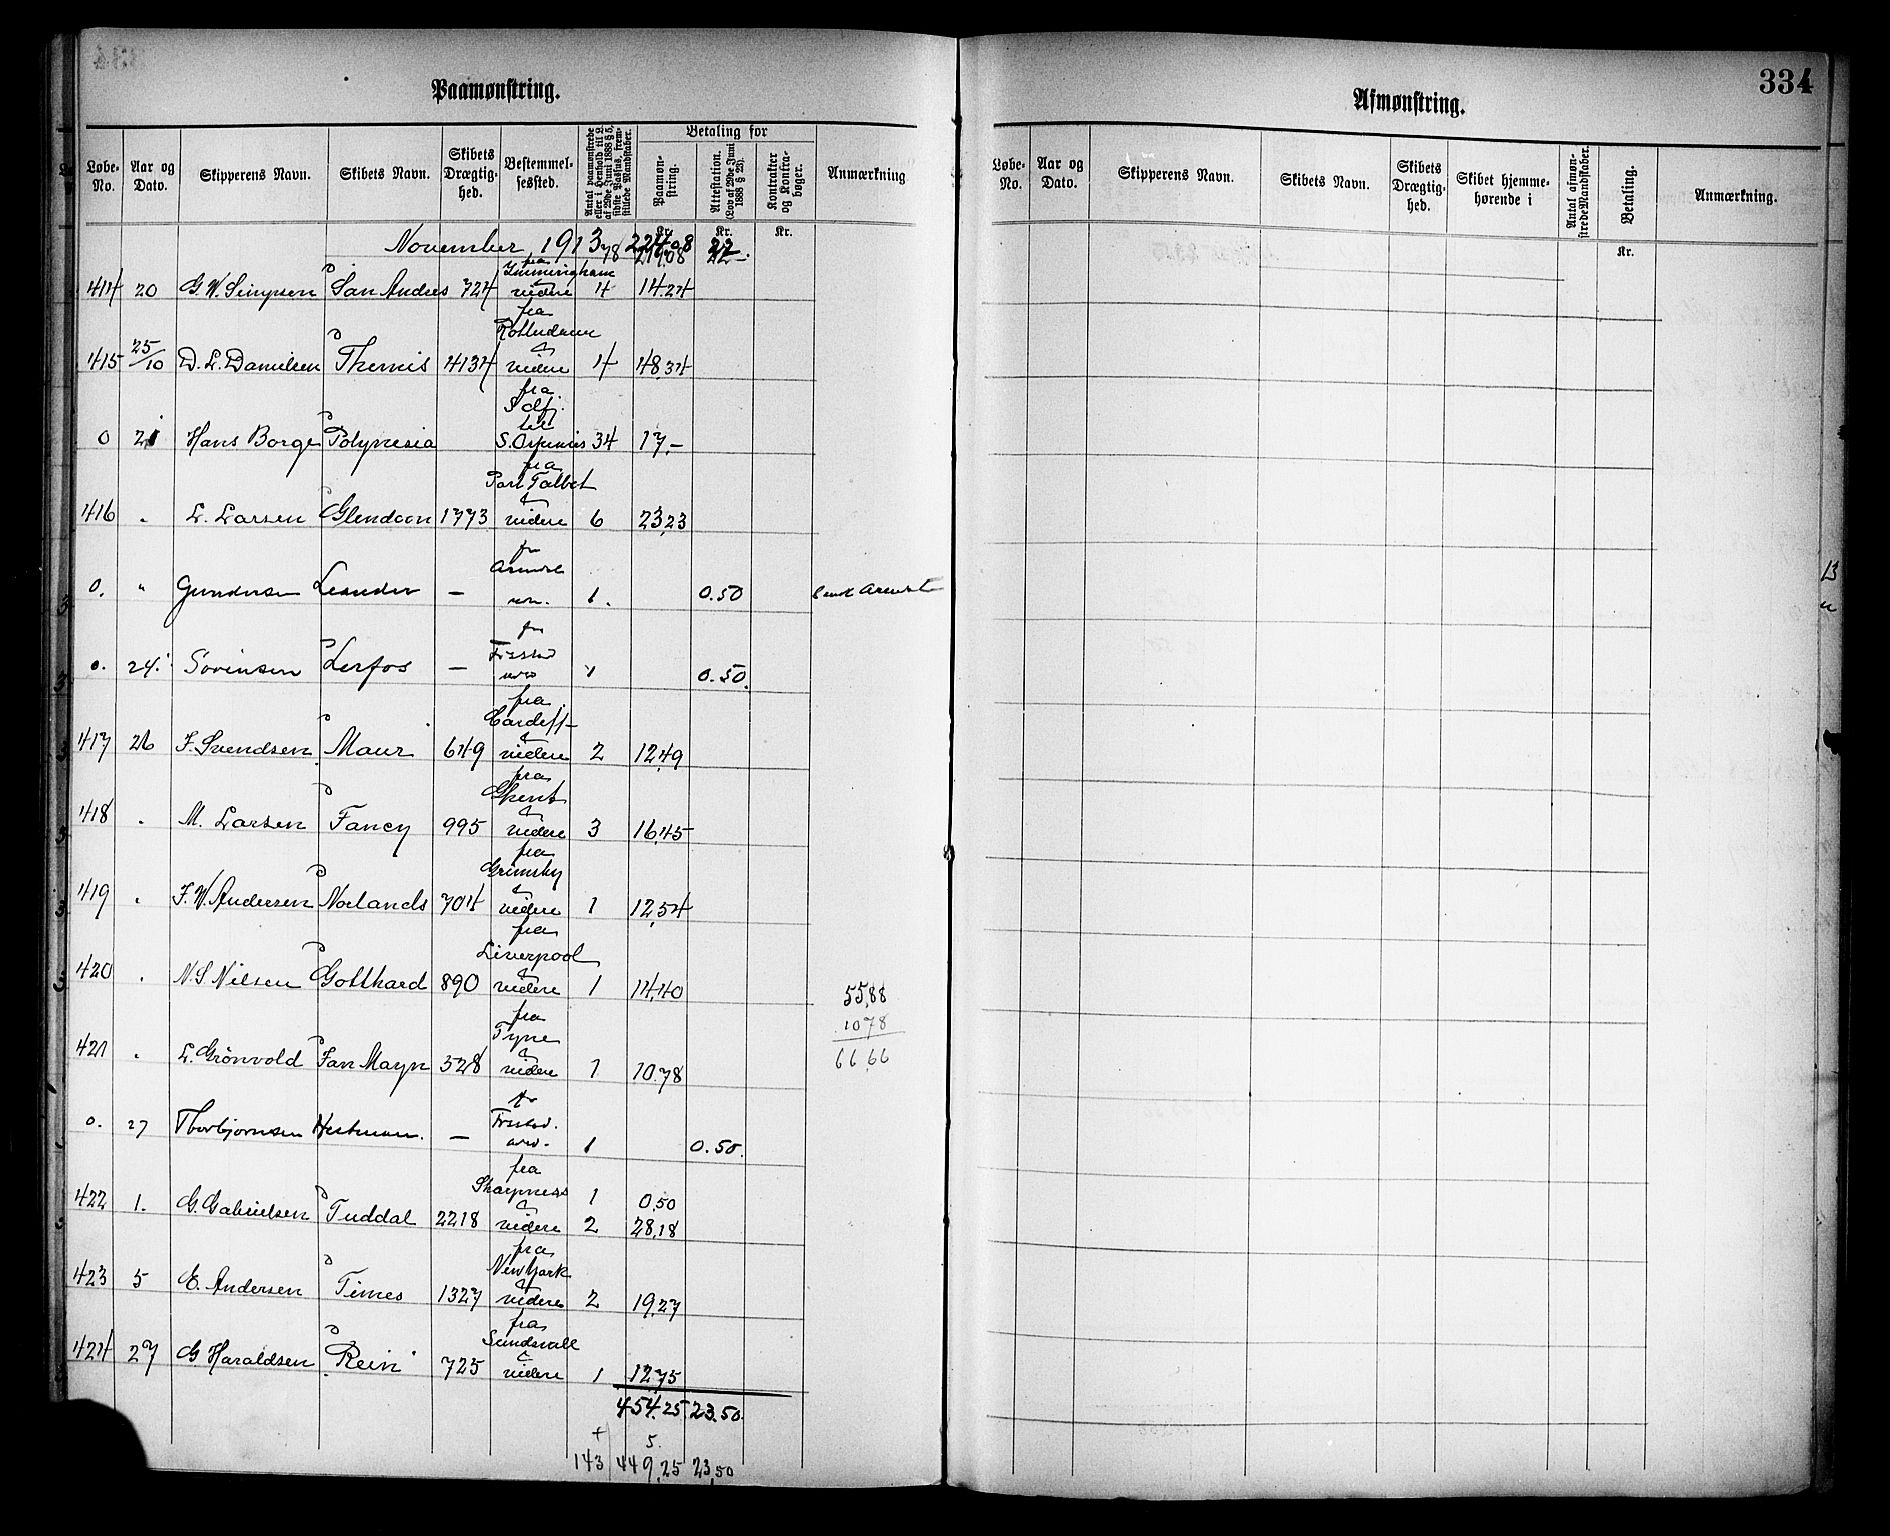 334
Paamønstring.
Afmønstring.
Løbe-No. Aar og Dato. Skipperens Navn. Skibets Navn. Skibets Drægtighed. Bestemmelsessted. Antal paamønstrede eller i Henhold til L. af 29de Juni 1888 § 5, sidste Passus, fremstillede Mandskaber. Betaling for Paamønstring. Attestation. (Lov af 29de Juni 1888 § 23). Kontrakter og Kontrabøger. Anmærkning
Løbe-No. Aar og Dato. Skipperens Navn. Skibets Navn. Skibets Drægtighed. Skibet hjemmehørende i Antal afmønstrede Mandskaber. Betaling. Anmærkning.
Kr. Kr. Kr. Kr.
November 1913 78 219,08 22
fra Immingham
414 20 G. W. Simpson San Andres 724 videre 4 14.24
fra
Rotterdam
415 25/10 D. L. Danielsen Themis 4134 videre 4 48,34
fra
Sdfj.
til
0 21 Hans Borge Polynesia S. 34 17,-
fra
Port Talbot
416 " L. Larsen Glendoon 1773 videre 6 23,23
fr
Arendal
0. " Gundersen Leander - 1. 0.50 Arendal
fr
Frstad
0. 24. Sörensen Lerfos - 1 0.50.
fra
Cardiff
417 26 F. Svendsen Maur 649 videre 2 12,49
fra
Ghent
418 " M. Larsen Fancy 995 videre 3 16,45
fra
Grimsby
419 " F. W. Andersen Norlands 704 videre 1 12,54
fra
Liverpool
420 " N. S. Nilsen Gotthard 890 videre 1 14,40
55,88
fra
Tyne
1078
421 " L. Grönvold Jan Mayn 528 videre 1 10.78
66,66
fr
Frstad.
0. 27 Thorbjörnsen Hestman. - 1 0.50.
fra
Sharpness 1 0,50
422 1. G. Gabrielsen Tuddal 2218 videre 2 28,18
fra
New York
423 5 E. Andersen Times 1327 videre 2 19,27
fra
Sundsvall
424 27 G Haraldsen Rein 725 videre 1 12,75
454.25 23.50.
5.
143 449,25 23,50